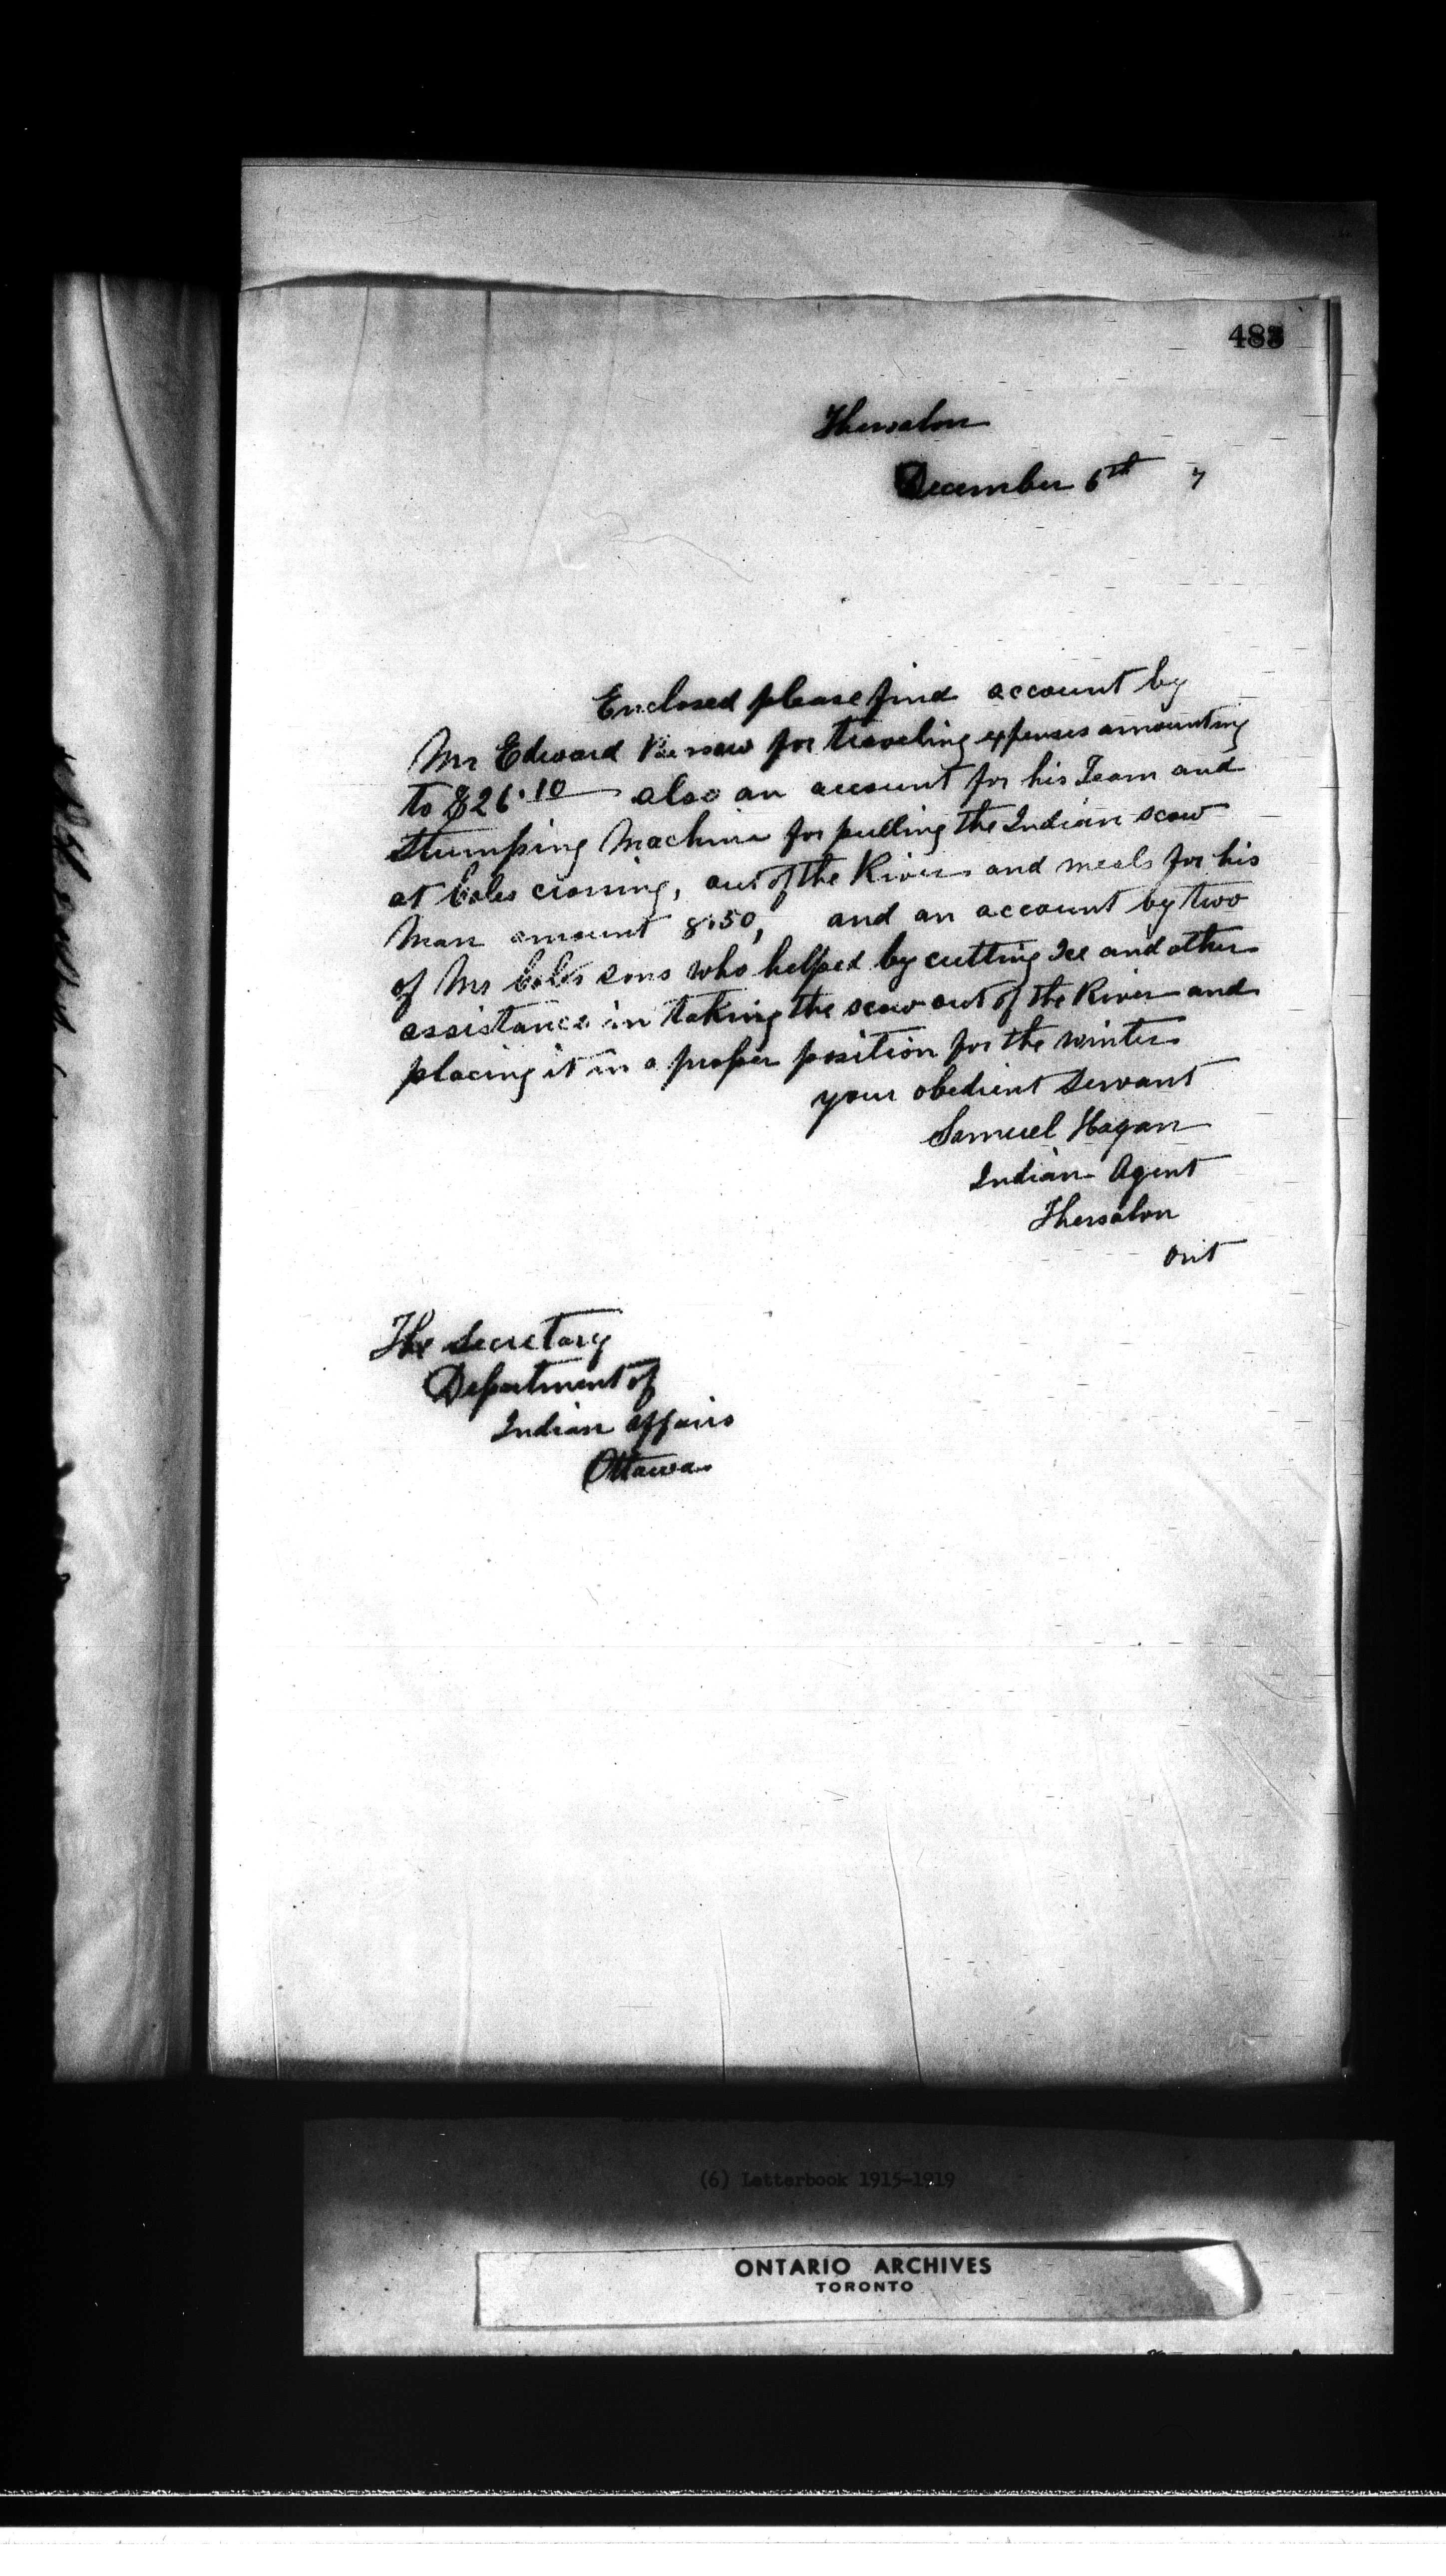 483
Thessalon
December 6th 7
Enclosed please find account by
Mr Edward for traveling expenses amounting
to $26.10 also an account for his Team and
Stumping Machine for pulling the Indian scow
at Coles crossing, out of the River and meals for his
Man amount 8.50, and an account by two
of Mr Coles sons who helped by cutting Ice and other
assistance in taking the scow out of the River and
placing it in a proper position for the winter
your obedient servant
Samuel Hagan
Indian Agent
Thessalon
Ont
The Secretary
Department of
Indian Affairs
Ottawa
(6) Letterbook 1915-1919
ONTARIO ARCHIVES
TORONTO